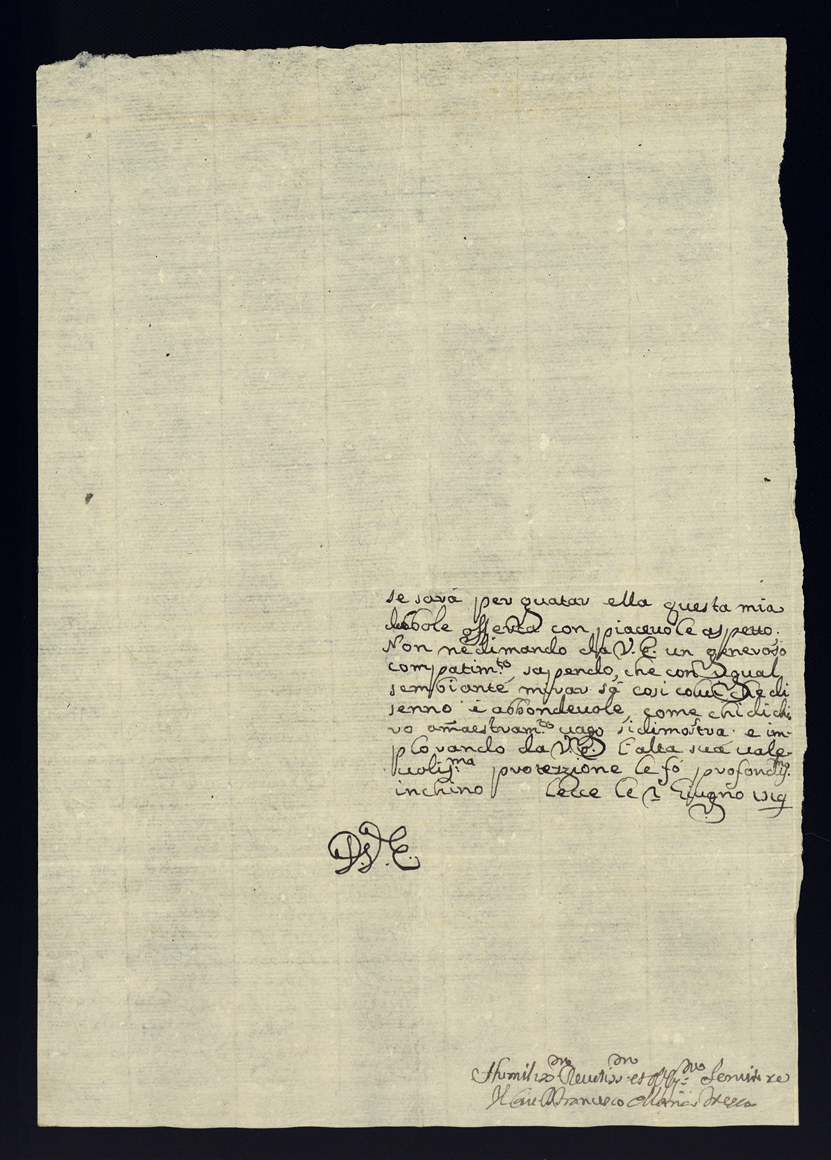 se sarà per guatar ella questa mia
debole offerta con piaceuole aspetto.
Non ne dimando da V.E. un generoso
compatim.to sapendo, che con egual
sembiante mirar sà così colui che di
senno è abbondeuole, come chi di chia
ro amaestram.to uago si dimostra. e im-
plorando da V.E. l'alta sua uale-
uolis.ma protezzione le fò profondis.mo
inchino Lecce le Giugno
D.V.E.
Humiliss.mo Deuotiss.mo et Oss.mo Seruitore
Francesco Maria